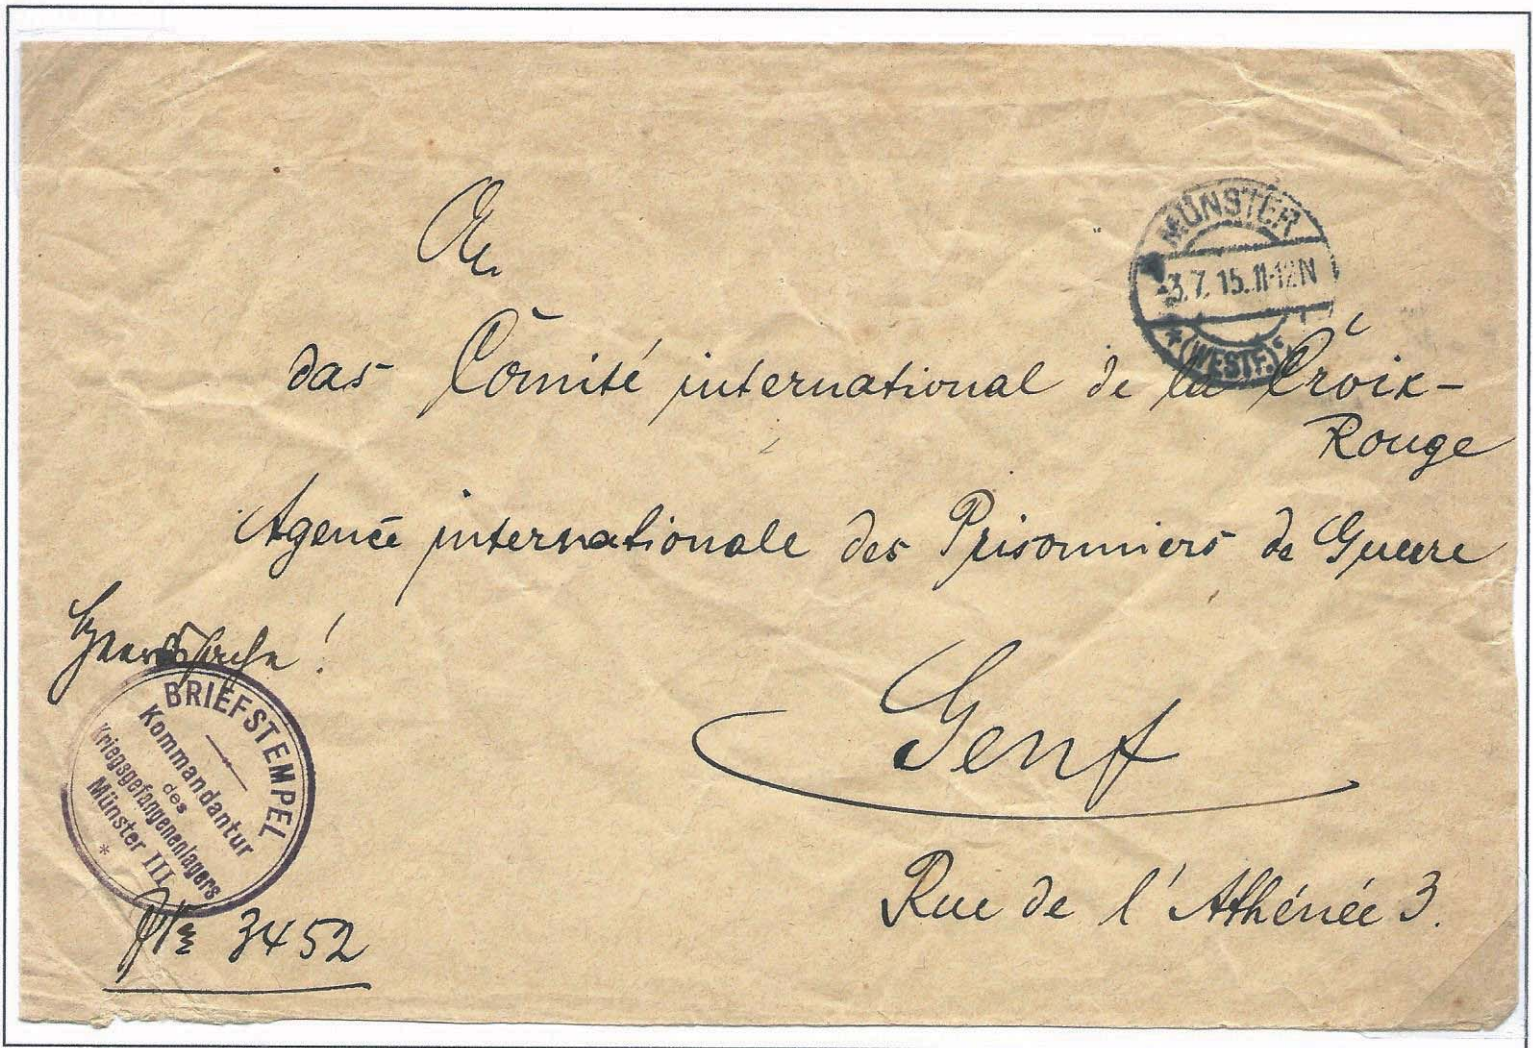 An
MÜNSTER
-3.7.15.11-12N
* (WESTF.) c
das Comité international de la Croix-
Rouge
Agence internationale des Prisonniers de Guerre
Heeressache!
Genf
BRIEFSTEMPEL
Kommandantur
des
Kriegsgefangenenlagers
Münster III
*
Rue de l'Athénée 3.
3452